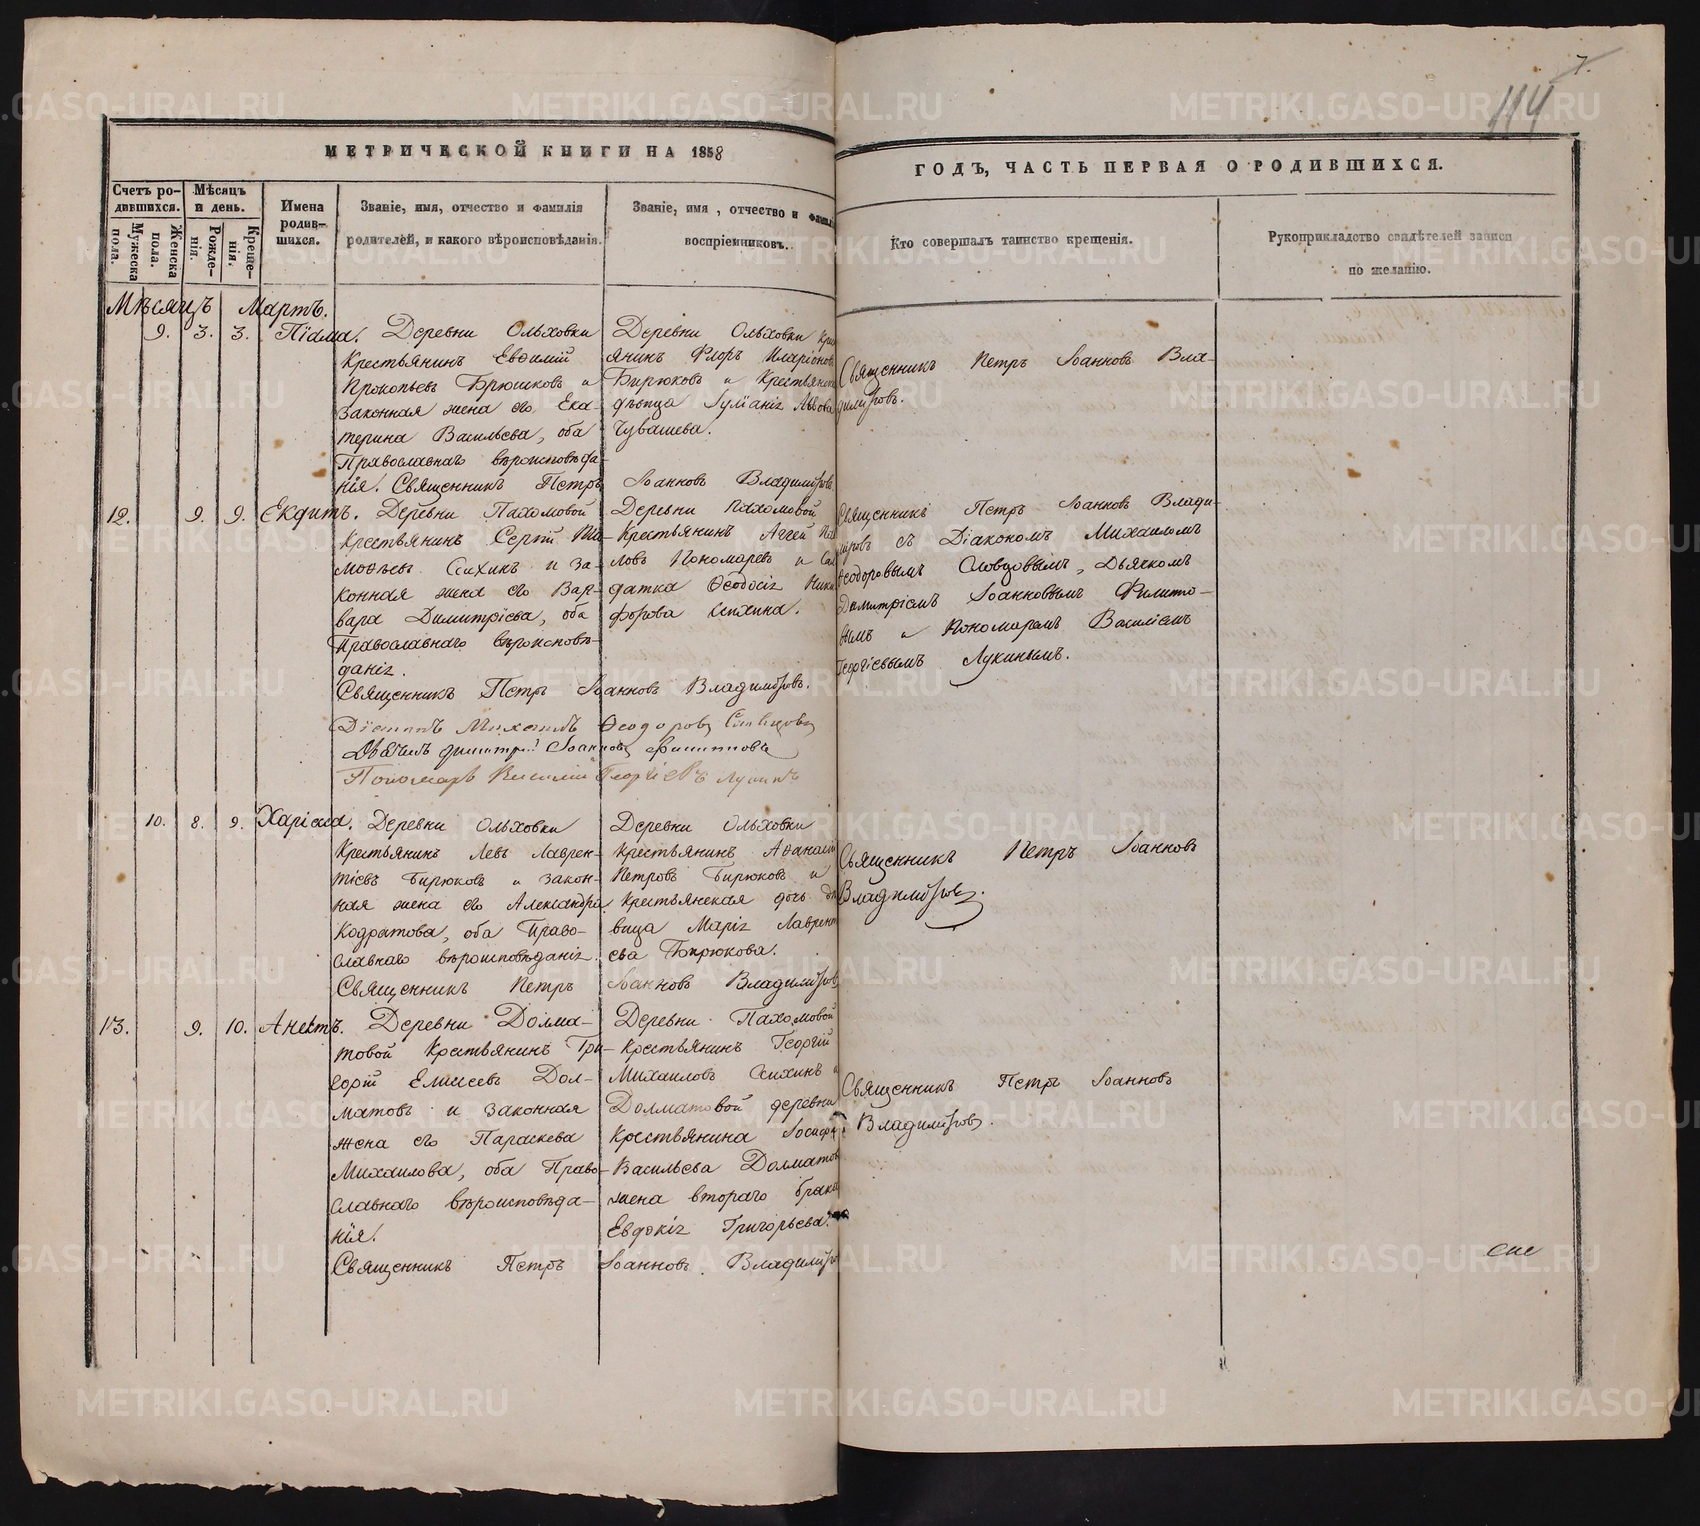 7.
114
МЕТРИЧЕСКОЙ КНИГИ НА 1858
ГОДЪ, ЧАСТЬ ПЕРВАЯ О РОДИВШИХСЯ.
Счетъ ро-
дившихся.
Мужеска
пола.
Женска
пола.
Мѣсяцъ
и день.
Рожде-
нія.
Креще-
нія.
Имена
родив-
шихся.
Званіе, имя, отчество и фамилія
родителей, и какого вѣроисповѣданія.
Званіе, имя, отчество и фамил
воспріемниковъ.
Кто совершалъ таинство крещенія.
Рукоприкладство свидѣтелей записи
по желанію.
Мѣсяцъ Мартъ.
9. 3. 3. Піама. Деревни Ольховки
Крестьянинъ Евѳимій
Прокопьевъ Брюшковъ и
законная жена его Ека-
терина Васильева, оба
Православнаго вѣроисповѣда-
нія. Священникъ Петръ Іоанновъ Владиміровъ
Деревни Ольховки Крес
янинъ Флоръ Иларіоновъ
Бирюковъ и Крестьянск
дѣвица Іуліанія Львова
Чувашева.
Священникъ Петръ Іоанновъ Вла-
диміровъ.
12. 9. 9. Екдитъ. Деревни Пахомовой
Крестьянинъ Сергій Ти-
моѳеевъ Сихинъ и за-
конная жена его Вар-
вара Димитріева, оба
Православнаго вѣроисповѣ-
данія.
Священникъ Петръ Іоанновъ Владиміровъ.
Діаконъ Михаилъ Ѳеодоровъ Словцовъ
Дьячекъ Димитрій Іоанновъ Филиповъ
Пономарь Василій Георгіевъ Лукинъ
Деревни Пахомовой
Крестьянинъ Аггей
ловъ Пономаревъ и Сол
датка Ѳеодосія Ники
форова Сихина.
Священникъ Петръ Іоанновъ Влади-
міровъ съ Діакономъ Михаиломъ
Ѳеодоровымъ Словцовымъ, Дьячкомъ
Димитріемъ Іоанновымъ Филипо-
вымъ и Пономаремъ Василіемъ
Георгіевымъ Лукинымъ.
10. 8. 9. Харіеса. Деревни Ольховки
Крестьянинъ Левъ Лаврен-
тіевъ Бирюковъ и закон-
ная жена его Александра
Кодратова, оба Право-
славнаго вѣроисповѣданія.
Священникъ Петръ Іоанновъ Владиміровъ
Деревни Ольховки
Крестьянинъ Аѳанасій
Петровъ Бирюковъ и
Крестьянская дочь дѣ
вица Марія Лаврент
ева Бирюкова.
Священникъ Петръ Іоанновъ
Владиміровъ.
13. 9. 10. Анектъ. Деревни Долма-
товой Крестьянинъ Гри-
горій Елисеевъ Дол-
матовъ и законная
жена его Параскева
Михаилова, оба Право-
славнаго вѣроисповѣда-
нія.
Священникъ Петръ Іоанновъ Владиміро
Деревни Пахомовой
Крестьянинъ Георгій
Михаиловъ Сихинъ и
Долматовой деревни
Крестьянина Іосифа
Васильева Долматов
жена втораго брака
Евдокія Григорьева.
Священникъ Петръ Іоанновъ
Владиміровъ.
METRIKI.GASO-URAL.RU